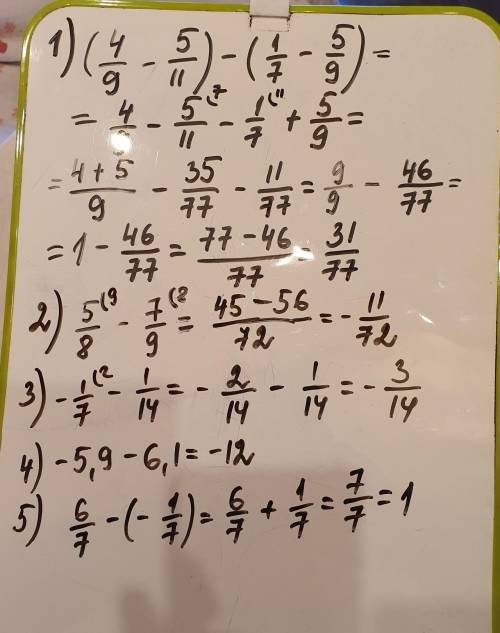 1) (4/9 - 5/11) - (1/7 - 5/9) =
= 4/9 - 5/11 (7 - 1/7 (11 + 5/9 =
= (4+5)/9 - 35/77 - 11/77 = 9/9 - 46/77 =
= 1 - 46/77 = (77-46)/77 = 31/77
2) 5/8 (9 - 7/9 (8 = (45-56)/72 = - 11/72
3) - 1/7 (2 - 1/14 = - 2/14 - 1/14 = - 3/14
4) -5,9 - 6,1 = -12
5) 6/7 - (- 1/7) = 6/7 + 1/7 = 7/7 = 1